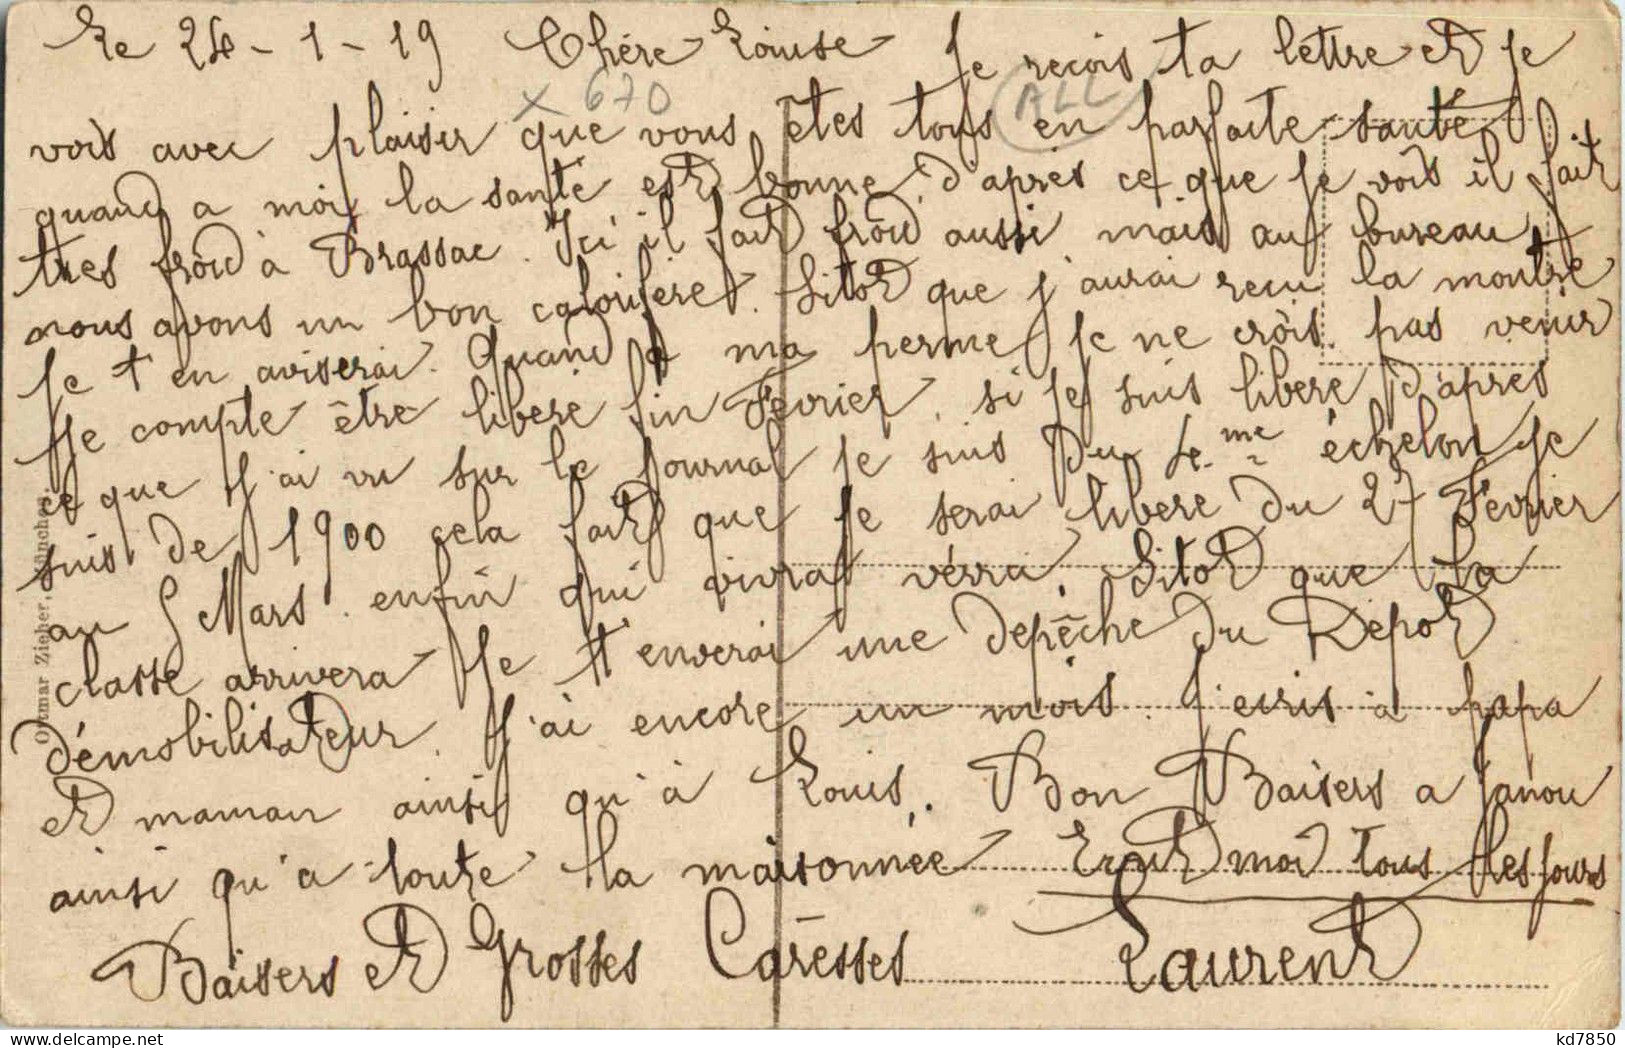 Le 24 - 1 - 19 Chére Louise Je reçois ta lettre et je
x 670
ALL
vois avec plaisir que vous étes tous en parfaite santé
quand a moi la santé est bonne, d'aprés ce que je vois il fait
tres froid à Brassac. Ici il fait froid aussi mais au bureau
nous avons un bon calorifere. Sitot que j'aurai recu la montre
Je t'en aviserai. Quand a ma perme je ne crois pas venir
Je compte être libere fin Fevrier, si je suis libere d'apres
ce que j'ai vu sur le journal je suis du 4me échelon je
suis de 1900 cela fait que je serai libere du 27 Fevrier
au 5 Mars. enfin qui vivra vérra. Sitot que la
classe arrivera je t'enverai une depêche du Depot
démobilisateur. J'ai encore un mois. J'ecris a papa
et maman ainsi qu'à Louis. Bon Baisers a Janou
ainsi qu'a toute la maisonnée Ecrit moi tous les jours
Baisers et Grosses Caresses Laurent
Ottmar Zieher, München.
kd7850